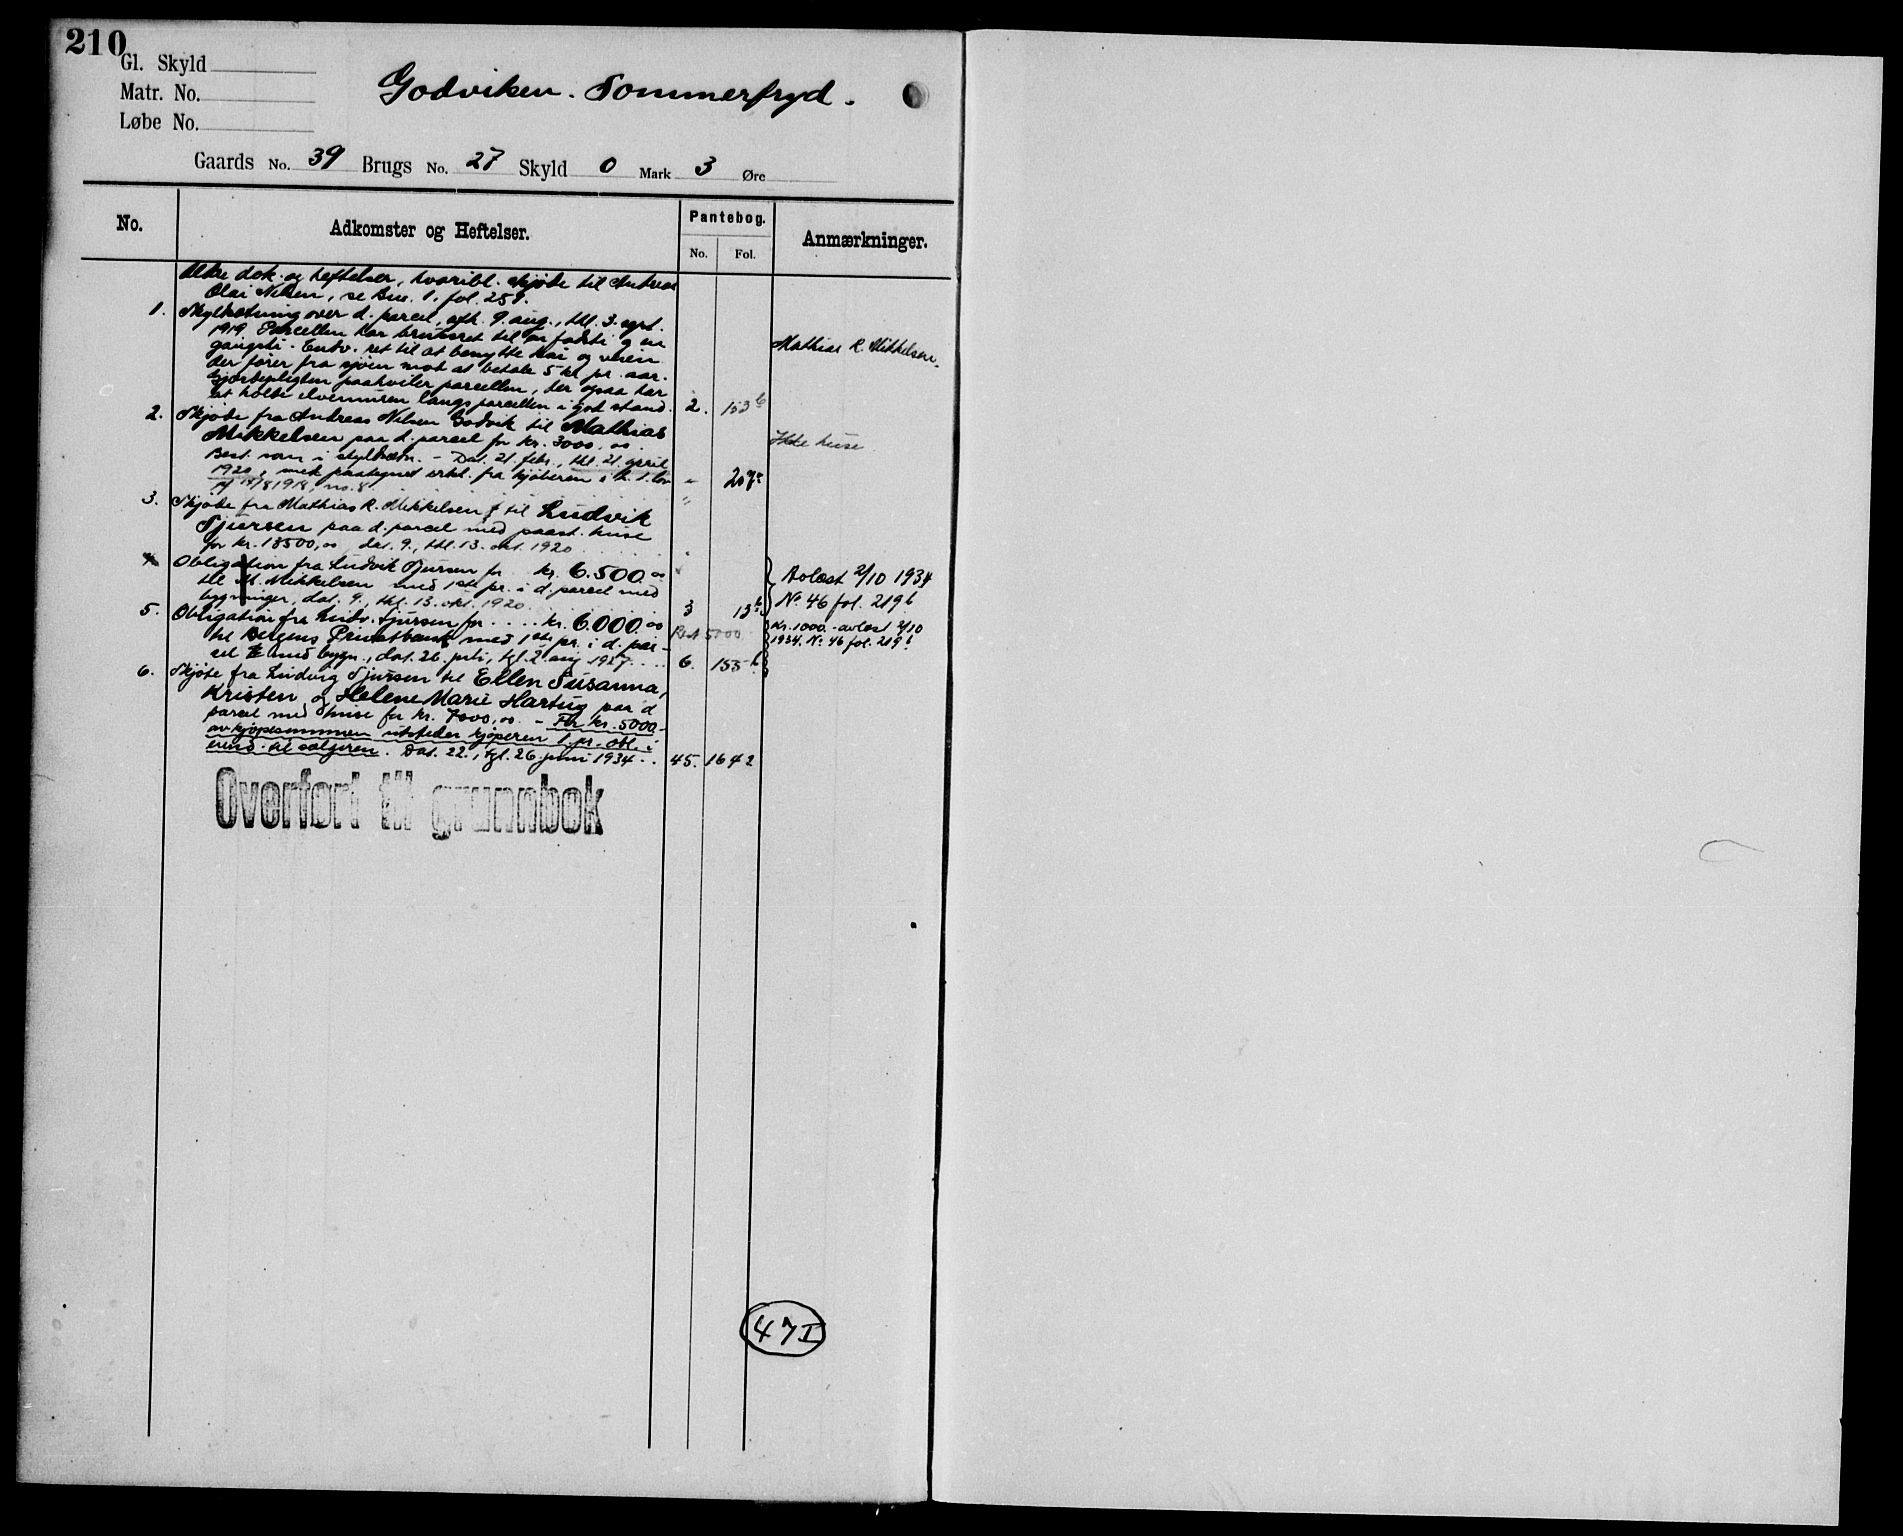 210
Gl. Skyld
Matr. No.
Løbe No.
Godviken. Sommerfryd.
Gaards No. 39 Brugs No. 27 Skyld 0 Mark 3 Øre
No.
Adkomster og Heftelser.
Pantebog.
No. Fol.
Anmærkninger.
Ældre dok. og heftelser, hvoribl. skjøte til Andreas
Olai Nilsen, se Bru. 1, fol. 259.
1. Skyldetning over d. parcel, afh. 9. aug., thl. 3. sept.
1919. Parcellen har bruksret til en fodsti og en
gangsti. Endv. ret til at benytte kai og veien
der fører fra sjøen mot at betale 5 kr pr. aar.
Gjærdepligten paahviler parcellen, der ogsaa har
at holde elvemuren langs parcellen i god stand. 2. 153 b
Mathias R. Mikkelsen.
2. Skjøde fra Andreas Nilsen Godvik til Mathias
Mikkelsen paa d. parcel for kr. 3000,00
Best. som i skyldsetn. - Dat. 21. febr., thl. 21. april
1920, med paategnet erkl. fra kjøberen i h. t. lov
af 14/8 1918, no. 8
Ikke huse
3. Skjøde fra Mathias R. Mikkelsen til Ludvik
Sjursen paa d. parcel med paast. huse
for kr. 13500,00 dat. 9., thl. 13. okt. 1920
4. Obligation fra Ludvik Sjursen for kr. 6.500.00
til M. Mikkelsen med 1ste pr. i d. parcel med
bygninger, dat. 9., thl. 13. okt. 1920 3
Avløst 2/10 1934
No 46 fol. 219 b
5. Obligation fra Ludv. Sjursen for .... kr. 6000.00
til Bergens Privatbank med 1ste pr. i d. par-
cel med bygn., dat. 26. juli, tgl. 2. aug 1927 .... 6. 155 b
Rest 5000
Kr. 1000.- avløst 2/10
1934. No 46 fol. 219 b
6. Skjøte fra Ludvig Sjursen til Ellen Susanna,
Kristen og Helene Marie Hartug paa d
parcel med huse for kr. 7000,00. - For kr. 5000
av kjøpesummen utsteder kjøperen 1. pr. obl. i
eiend. til selgeren. Dat. 22., tgl. 26. juni 1934 .. 45. 1642
Overført til grunnbok
47 I